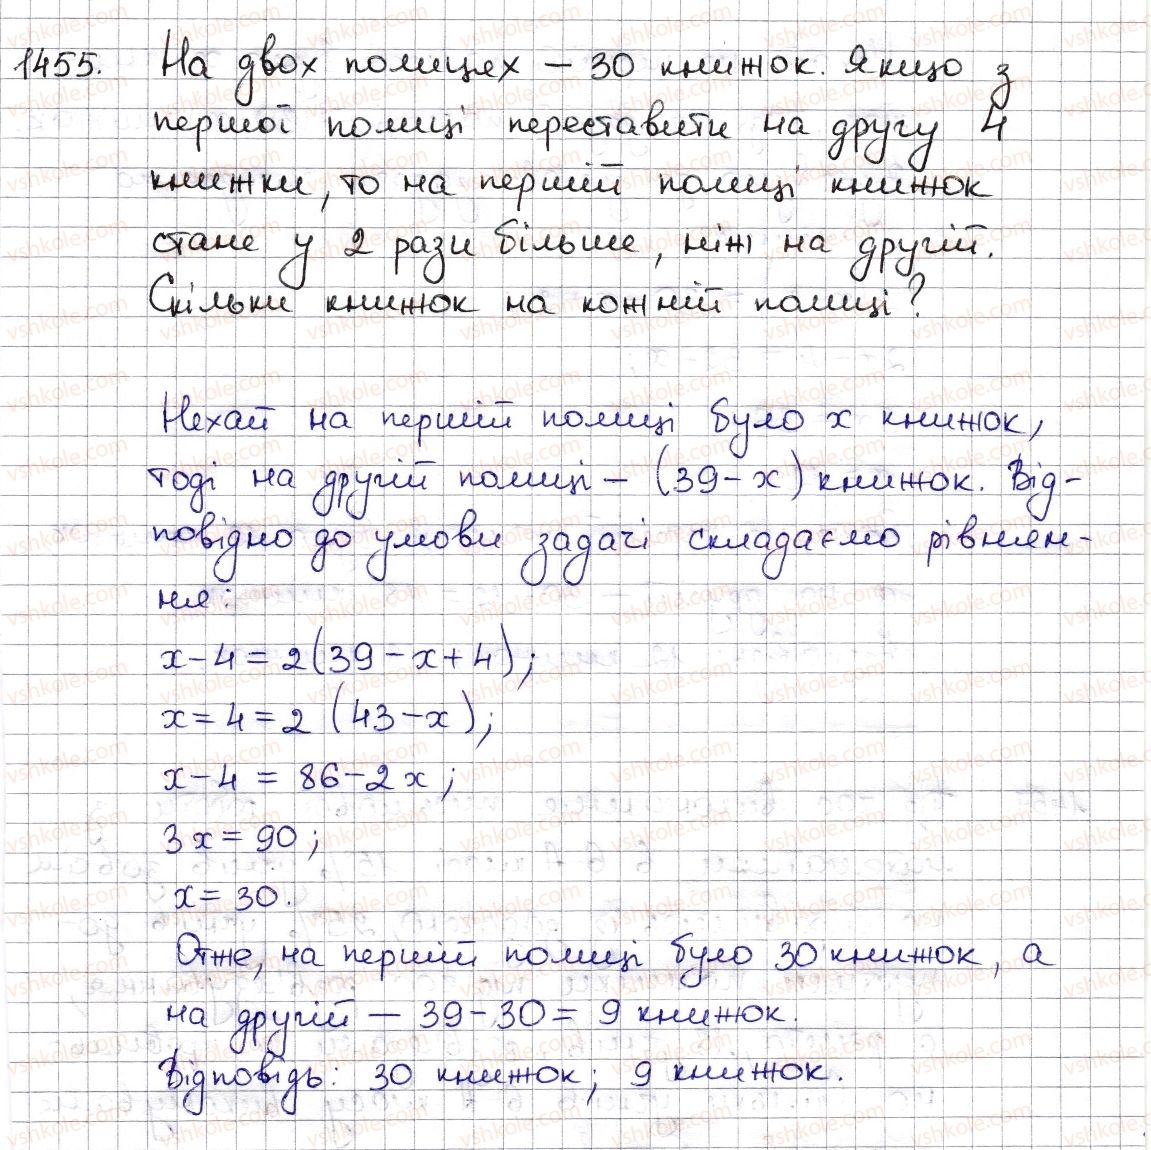 1455. На двох полицях – 30 книжок. Якщо з
першої полиці переставити на другу 4
книжки, то на першій полиці книжок
стане у 2 рази більше, ніж на другій.
Скільки книжок на кожній полиці?
Нехай на першій полиці було x книжок,
тоді на другій полиці – (39 - x) книжок. Від-
повідно до умови задачі складаємо рівнян-
ня:
x - 4 = 2(39 - x + 4);
x = 4 = 2 (43 - x);
x - 4 = 86 - 2x;
3x = 90;
x = 30.
Отже, на першій полиці було 30 книжок, а
на другій – 39 - 30 = 9 книжок.
Відповідь: 30 книжок; 9 книжок.